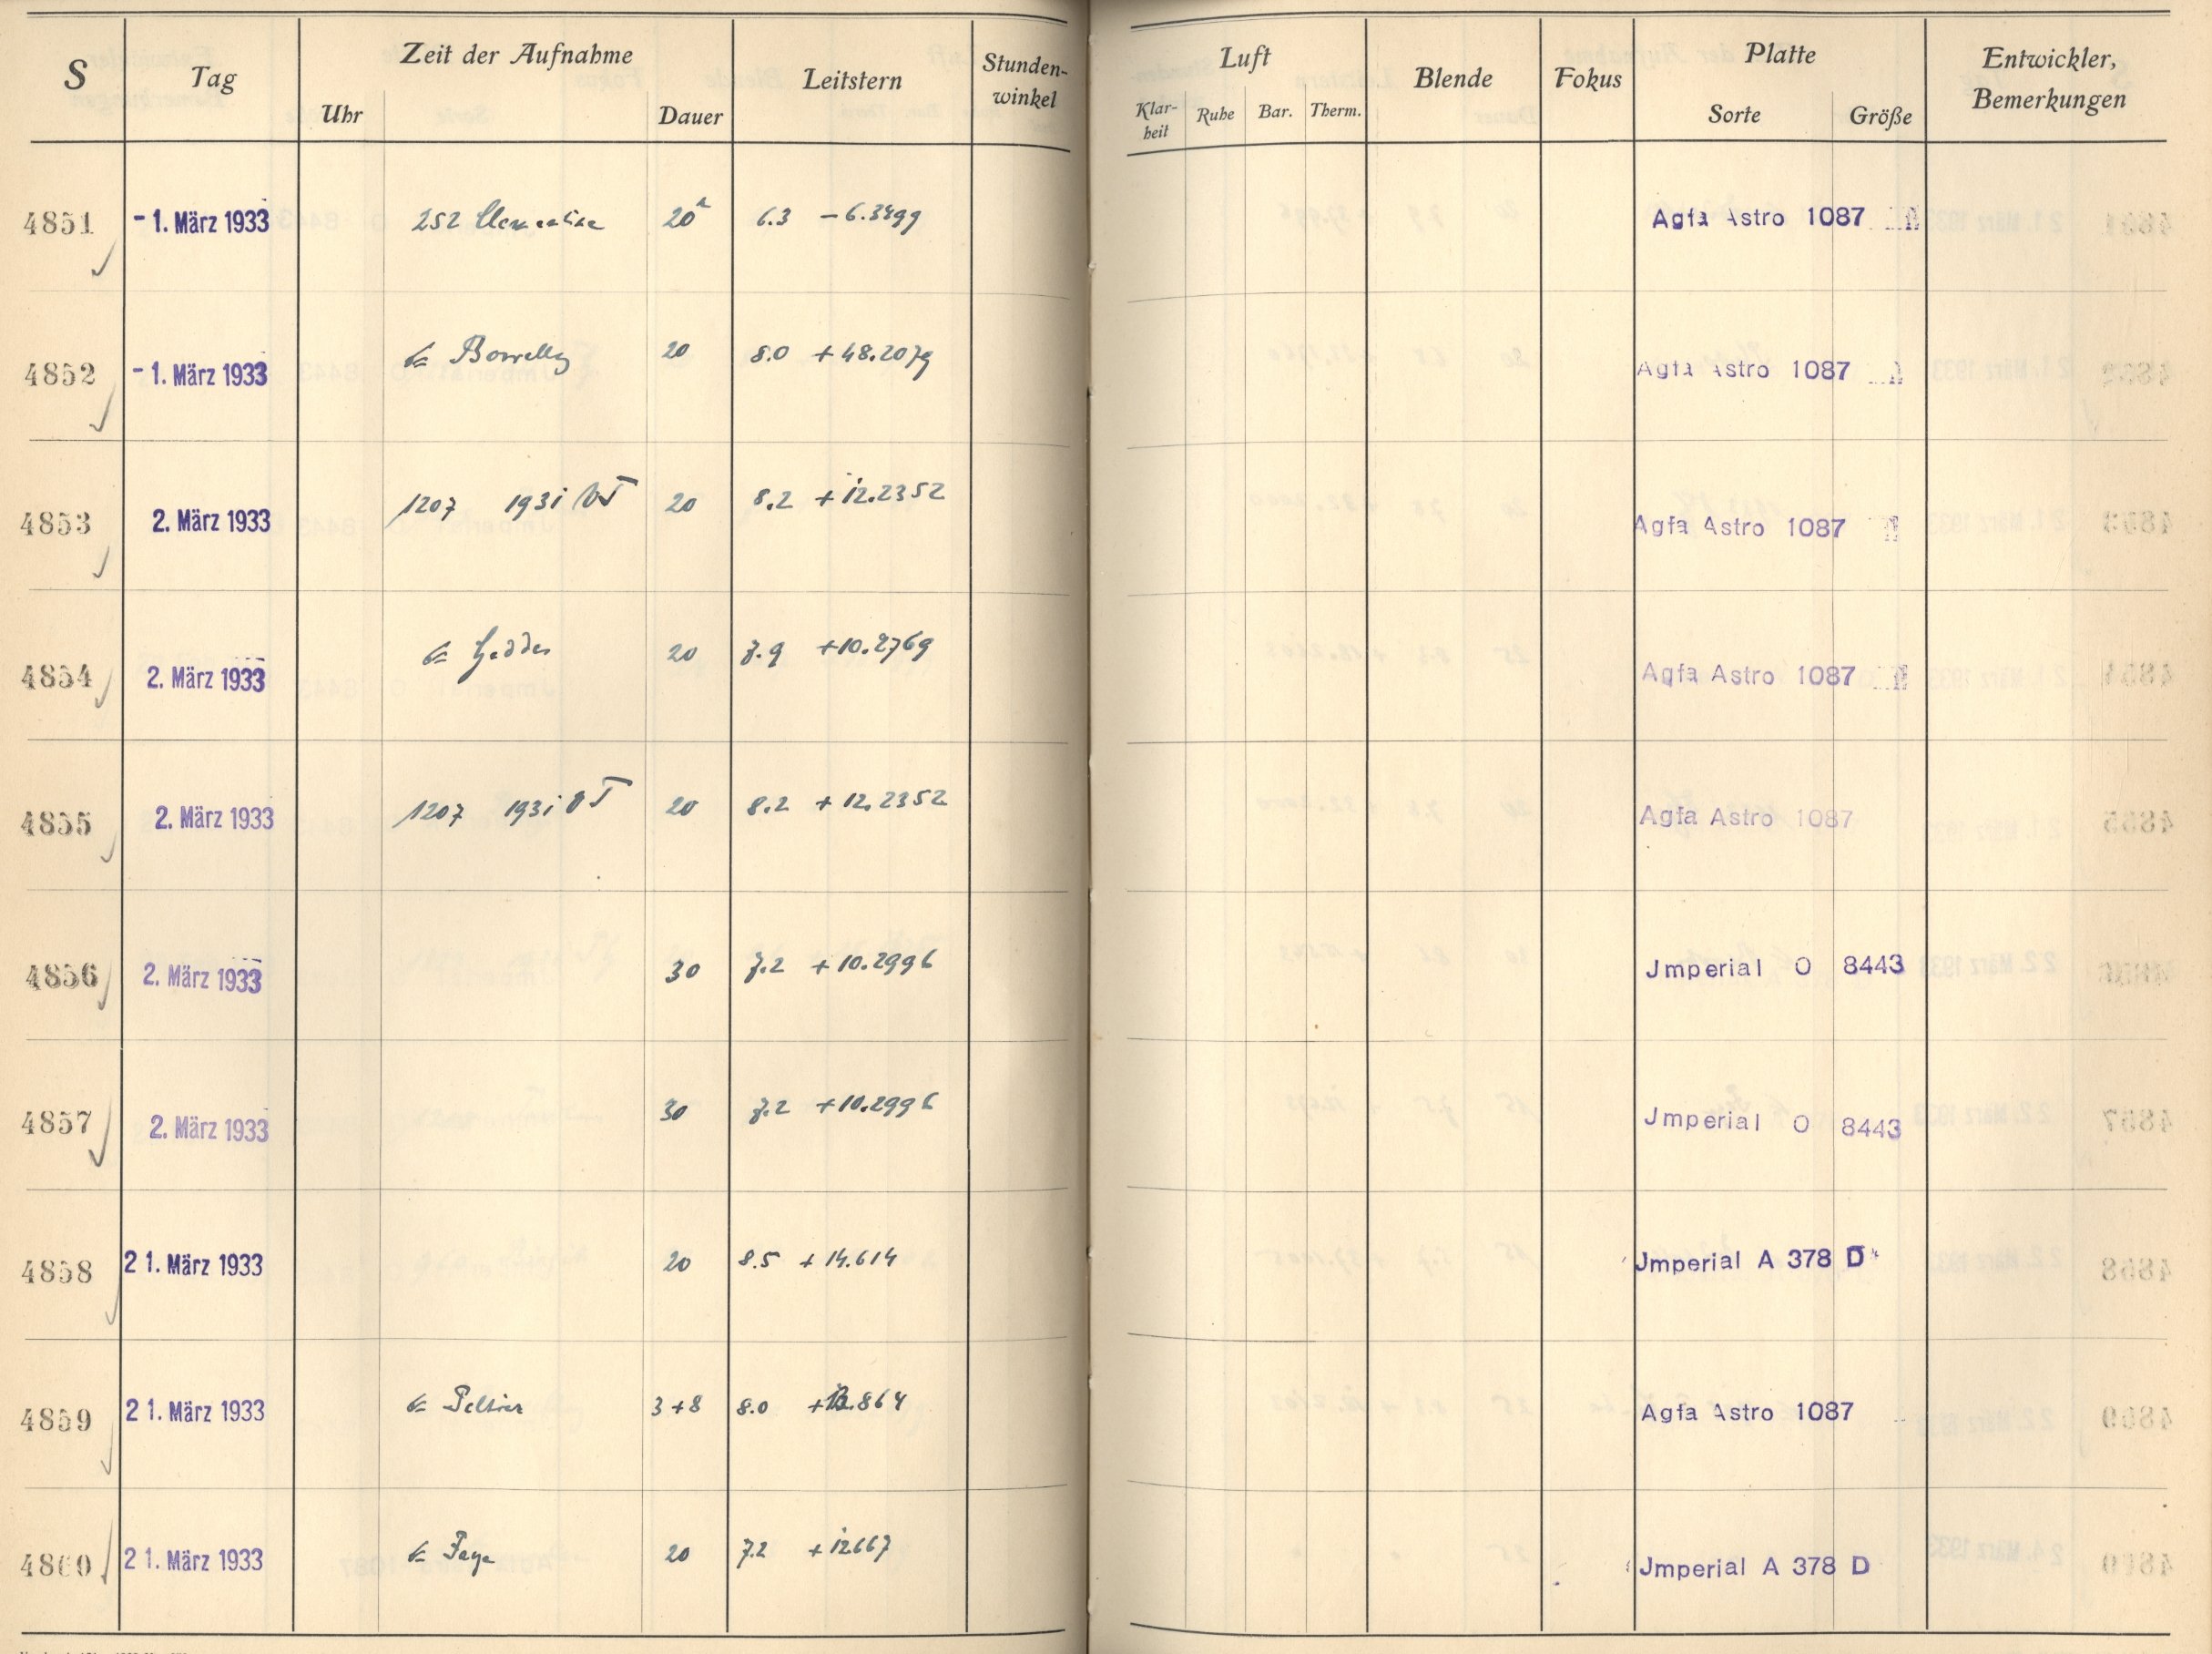 S Tag Zeit der Aufnahme Leitstern Stunden-winkel Luft Blende Fokus Platte Entwickler, Bemerkungen
Uhr Dauer Klar-heit Ruhe Bar. Therm. Sorte Größe
4851 - 1. März 1933 252 Clementine 20 6.3 - 6.3499 Agfa Astro 1087
4852 - 1. März 1933 Borrelly 20 8.0 + 48.2079 Agfa Astro 1087
4853 2. März 1933 1207 1931 VT 20 8.2 + 12.2352 Agfa Astro 1087
4854 2. März 1933 Geddes 20 7.9 + 10.2769 Agfa Astro 1087
4855 2. März 1933 1207 1931 VT 20 8.2 + 12.2352 Agfa Astro 1087
4856 2. März 1933 30 7.2 + 10.2996 Jmperial O 8443
4857 2. März 1933 30 7.2 + 10.2996 Jmperial O 8443
4858 21. März 1933 20 8.5 + 14.614 Jmperial A 378 D
4859 21. März 1933 Peltier 3+8 8.0 Agfa Astro 1087
4860 21. März 1933 Faye 20 7.2 + 12667 Jmperial A 378 D